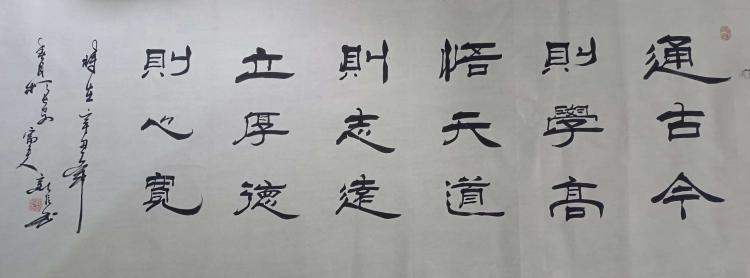 通古今
則學高
悟天道
則志遠
立厚德
則心寬
時在辛丑年